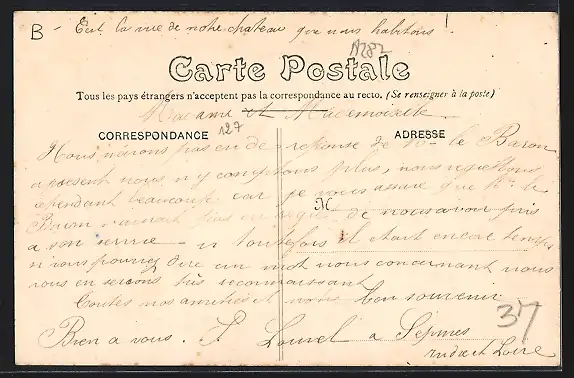 B - Cest la vue de notre chateau que nous habitons !
A282
Carte Postale
Tous les pays étrangers n'acceptent pas la correspondance au recto. (Se renseigner à la poste)
Madame et Mademoiselle
CORRESPONDANCE 127 ADRESSE
Nous navons pas eu de reponse de Mr le Baron
a present nous ny comptons plus, nous regrettons
cependant beaucoup car je vous assure que Mr le
M
Baron naurait pas eu regret de nous avoir pris
a son service - si toutefois il etait encore temps
si vous pourriez dire un mot nous concernant nous
vous en serions très reconnaissant
Toutes nos amitiés et notre bon souvenir
Bien a vous. P Louvel a Sepmes
Indre et Loire
37